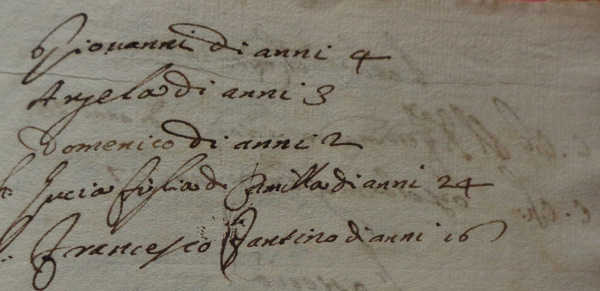 Giovanni di anni 4
Angela di anni 3
Domenico di anni 2
Lucia figlia di Camilla di anni 24
Francesco Fantino di anni 16